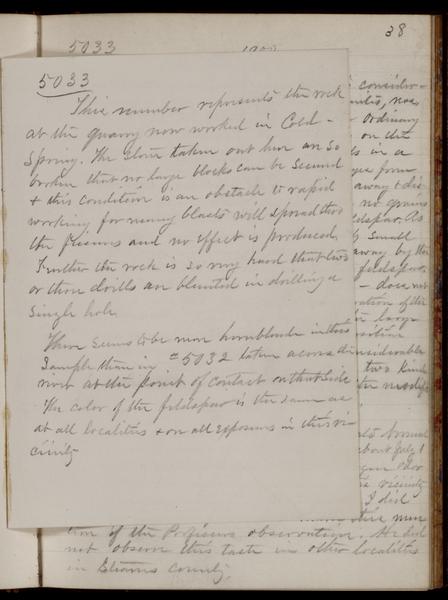 38
5033
5033
This number represents the rock
at the quarry now worked in Cold-
Spring. The stone taken out here are so
broken that no large blocks can be secured
& this condition is an obstacle to rapid
working for many blasts will spread thro
the fissures and no effect is produced.
Further the rock is so very hard that two
or three drills are blunted in drilling a
single hole.
There seems to be more hornblende in this
Sample than in #5032 taken across the
river at the point of contact on that side
The color of the feldspar is the same as
at all localities & on all exposures in this vi-
cinity
consider-
ordinary
on the
in a
form
away & di
no grains
feldspar. As
small
away by the
feldspar,
does not
of the
large
considerable
two kind
about July 1
vicinity
I did
tion of the Professors observation. He did
not observe this taste in other localities
in Stearns County.